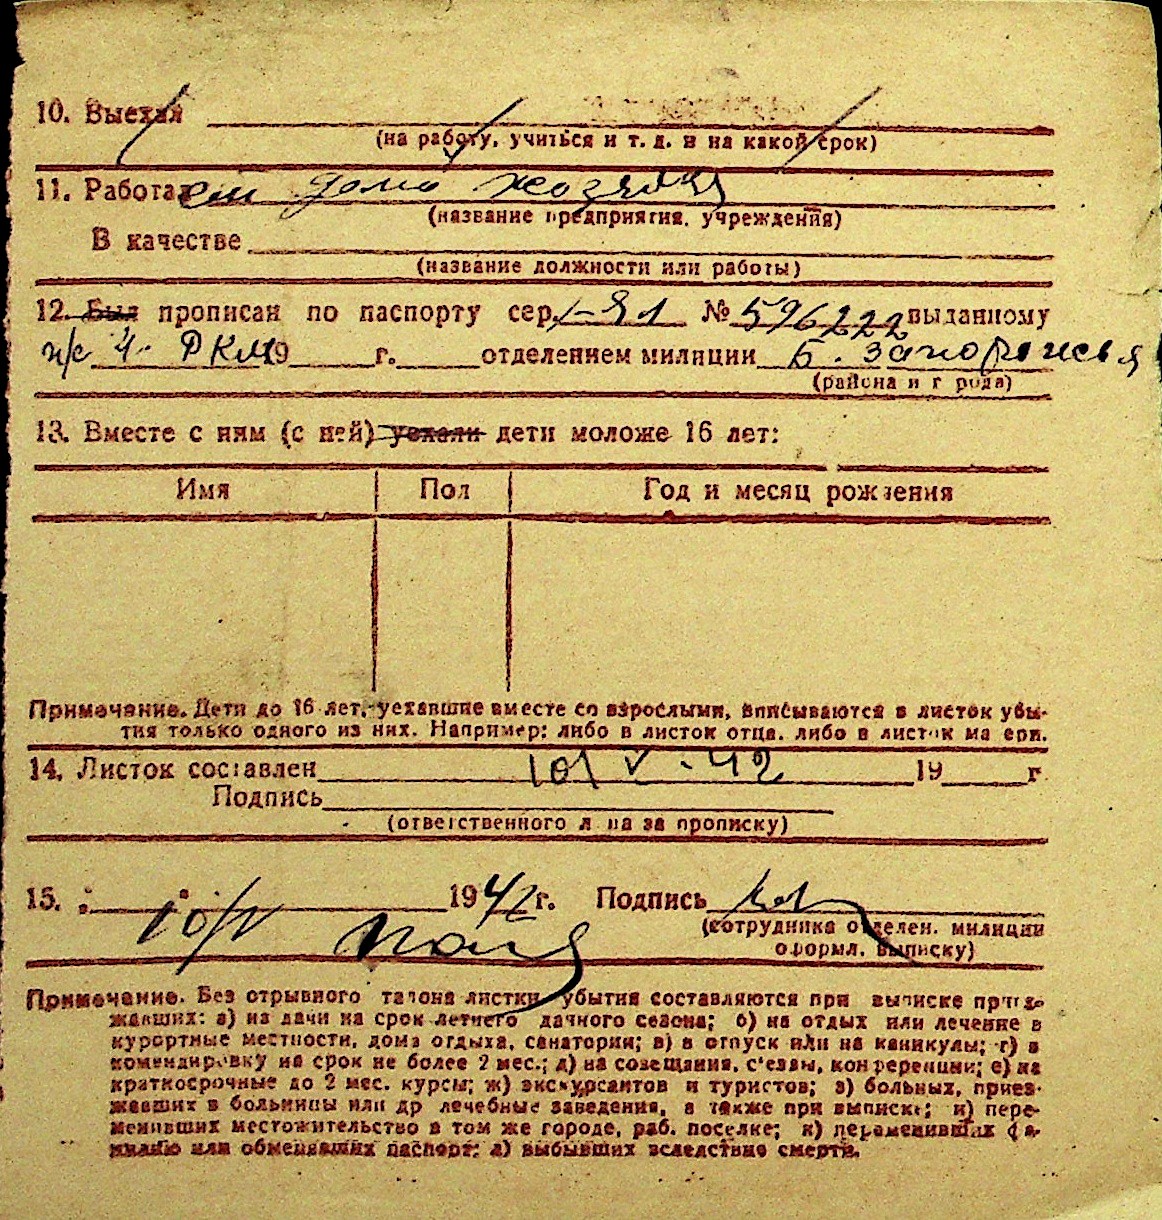 10. Выехал
(на работу, учиться и т. д. и на какой срок)
11. Работал дома хозяйка
(название предприятия, учреждения)
В качестве
(название должности или работы)
12. Был прописан по паспорту сер. I-ЯЛ № 596222 выданному
п/с 4. РКМ 19 г. отделением милиции Б. Запорожья
(района и города)
13. Вместе с ним (с ней) уехали дети моложе 16 лет:
Имя Пол Год и месяц рождения
Примечание. Дети до 16 лет, уехавшие вместе со взрослыми, вписываются в листок убы-
тия только одного из них. Например: либо в листок отца, либо в листок матери.
14. Листок составлен 10/V-42 19 г
Подпись
(ответственного лица за прописку)
15. 10/V 1942г. Подпись
(сотрудника отделен. милиции
оформл. выписку)
Примечание. Без отрывного талона листки убытия составляются при выписке приез-
жавших: а) из дачи на срок летнего дачного сезона; б) на отдых или лечение в
курортные местности, дома отдыха, санатории; в) в отпуск или на каникулы; г) в
командировку на срок не более 2 мес.; д) на совещания, с'езды, конференции; е) на
краткосрочные до 2 мес. курсы; ж) экскурсантов и туристов; з) больных, приез-
жавших в больницы или др лечебные заведения, а также при выписке; и) пере-
менивших местожительство в том же городе, раб. поселке; к) переменивших фа-
милию или обменявших паспорт; л) выбывших вследствие смерти.